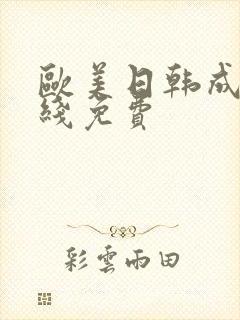 歐美日韩成
綫免費
彩雲雨田